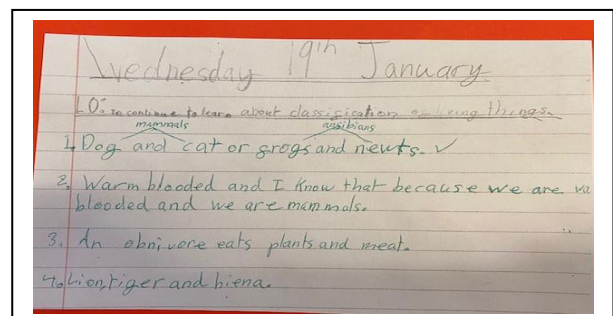 Wednesday 19th January
LO: To continue to learn about classisication of living things.
mammals amsibians
1. Dog and cat or grogs and newts. ✓
2. Warm blooded and I know that because we are wa
blooded and we are mammals.
3. An obnivore eats plants and meat.
4. Lion, tiger and hiena.